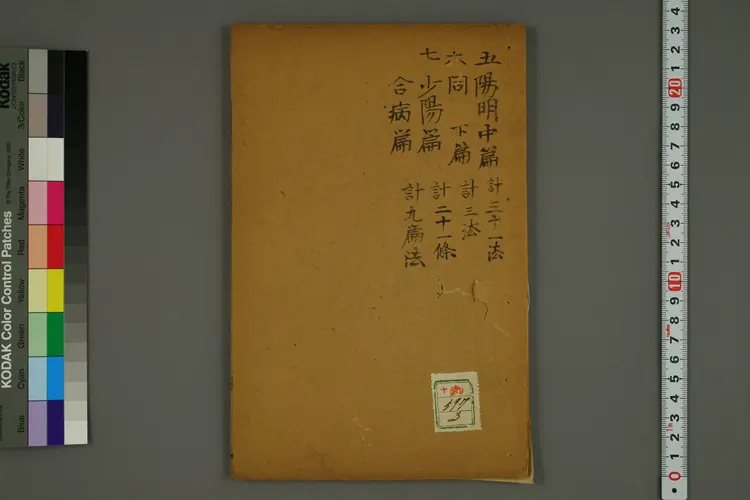 五陽明中篇 計三十一法
六同 下篇 計三法
七少陽篇 計二十一條
合病篇 計九篇法
397
5
Kodak
KODAK Color Control Patches
Black
3/Color
White
Magenta
Red
Yellow
Green
Cyan
Blue
4
3
2
1
20
9
8
7
6
5
4
3
2
1
10
9
8
7
6
5
4
3
2
1
0